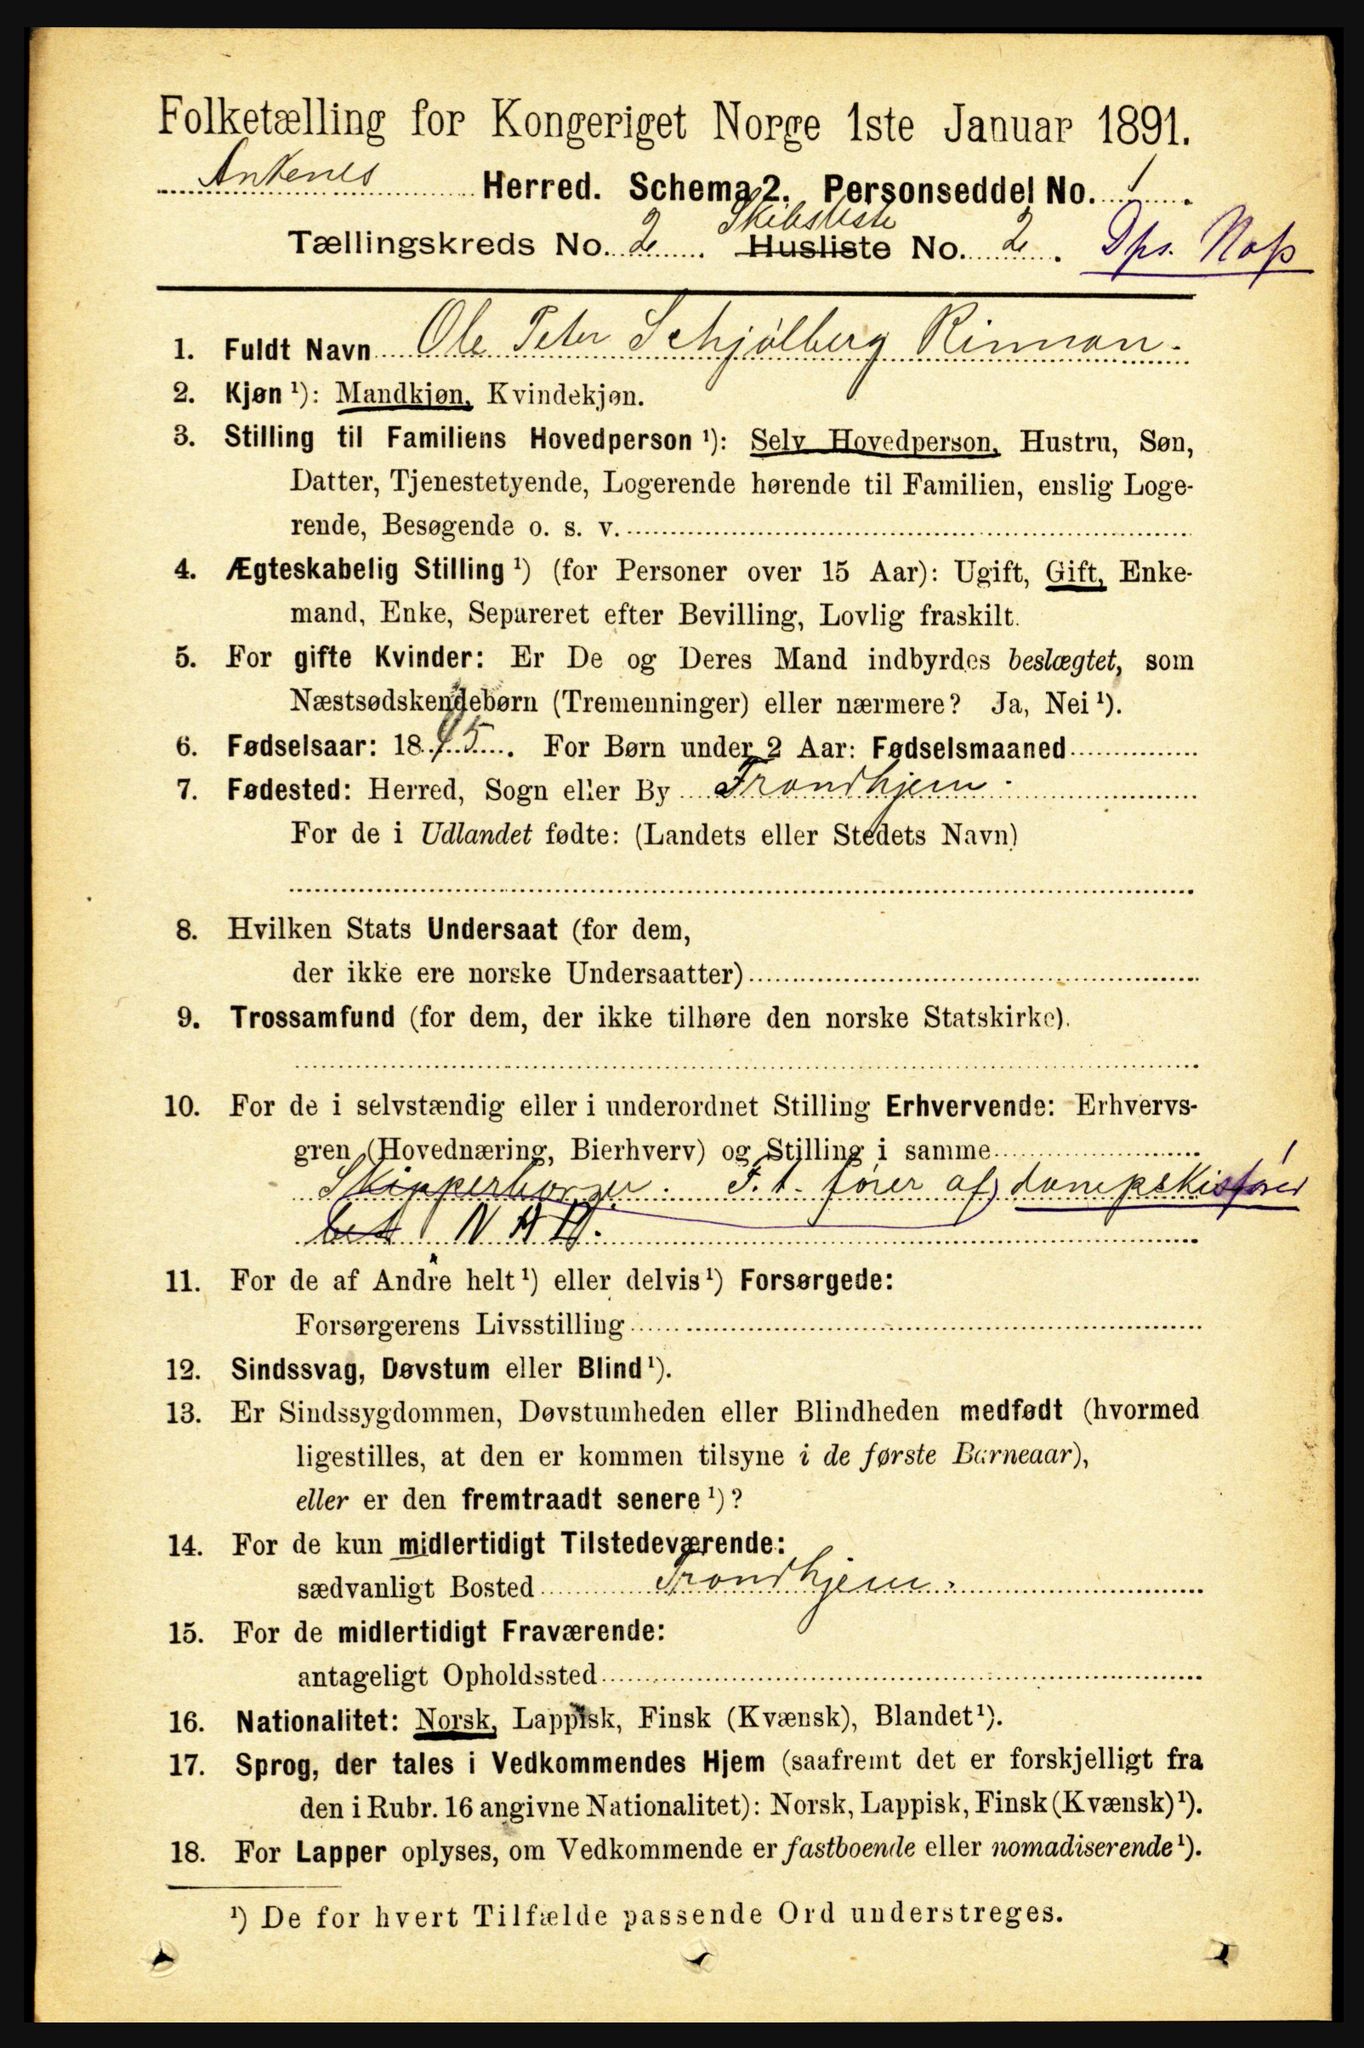 Folketælling for Kongeriget Norge 1ste Januar 1891.
Ankenes Herred. Schema 2. Personseddel No. 1.
Skibsliste
Tællingskreds No. 2. Husliste No. 2. Dps. Nøp
1. Fuldt Navn Ole Peter Schjølberg Rinnan.
2. Kjøn ¹): Mandkjøn, Kvindekjøn.
3. Stilling til Familiens Hovedperson ¹): Selv Hovedperson, Hustru, Søn,
Datter, Tjenestetyende, Logerende hørende til Familien, enslig Loge-
rende, Besøgende o. s. v.
4. Ægteskabelig Stilling ¹) (for Personer over 15 Aar): Ugift, Gift, Enke-
mand, Enke, Separeret efter Bevilling, Lovlig fraskilt.
5. For gifte Kvinder: Er De og Deres Mand indbyrdes beslægtet, som
Næstsødskendebørn (Tremenninger) eller nærmere? Ja, Nei ¹).
6. Fødselsaar: 1845. For Børn under 2 Aar: Fødselsmaaned
7. Fødested: Herred, Sogn eller By Trondhjem.
For de i Udlandet fødte: (Landets eller Stedets Navn)
8. Hvilken Stats Undersaat (for dem,
der ikke ere norske Undersaatter)
9. Trossamfund (for dem, der ikke tilhøre den norske Statskirke).
10. For de i selvstændig eller i underordnet Stilling Erhvervende: Erhvervs-
gren (Hovednæring, Bierhverv) og Stilling i samme
Skipperborger. F. t. fører af dampskibsfører
bet N A D.
11. For de af Andre helt ¹) eller delvis ¹) Forsørgede:
Forsørgerens Livsstilling
12. Sindssvag, Døvstum eller Blind ¹).
13. Er Sindssygdommen, Døvstumheden eller Blindheden medfødt (hvormed
ligestilles, at den er kommen tilsyne i de første Barneaar),
eller er den fremtraadt senere ¹)?
14. For de kun midlertidigt Tilstedeværende:
sædvanligt Bosted Trondhjem.
15. For de midlertidigt Fraværende:
antageligt Opholdssted
16. Nationalitet: Norsk, Lappisk, Finsk (Kvænsk), Blandet ¹).
17. Sprog, der tales i Vedkommendes Hjem (saafremt det er forskjelligt fra
den i Rubr. 16 angivne Nationalitet): Norsk, Lappisk, Finsk (Kvænsk) ¹).
18. For Lapper oplyses, om Vedkommende er fastboende eller nomadiserende ¹).
¹) De for hvert Tilfælde passende Ord understreges.